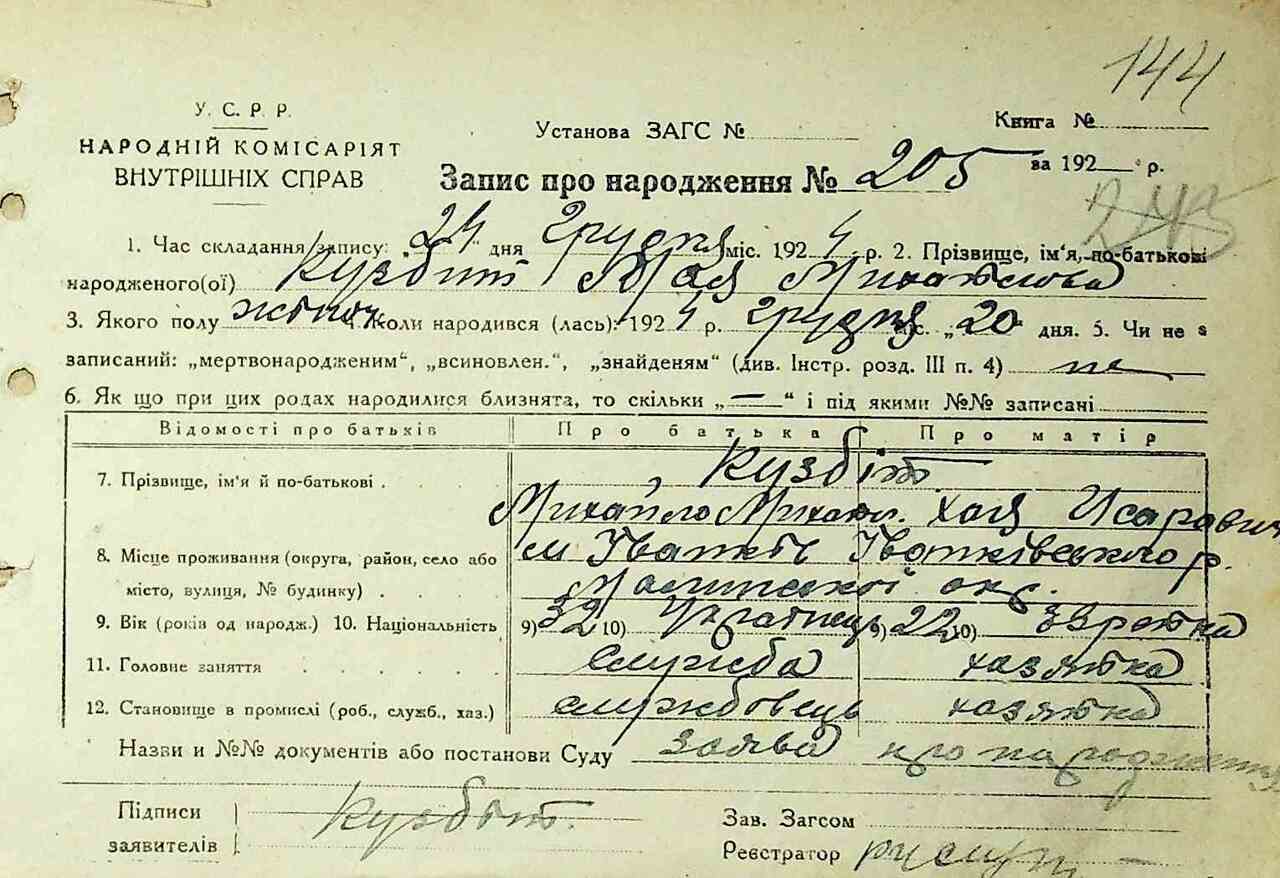 144
У. С. Р. Р.
НАРОДНІЙ КОМІСАРІЯТ
ВНУТРІШНІХ СПРАВ
Установа ЗАГС №
Книга №
Запис про народження № 205 за 192 р.
1. Час складання запису: „24" дня Грудня міс. 1924 р. 2. Прізвище, ім'я, по-батькові
народженого(ої) Кузбит Мая Михайлова
3. Якого полу жіноч 4. Коли народився (лась): 1924 р. Грудня міс. „20 дня. 5. Чи не є
записаний: „мертвонародженим“, „всиновлен.“, „знайденям“ (див. Інстр. розд. III п. 4) не
6. Як що при цих родах народилися близнята, то скільки „—“ і під якими №№ записані
Відомості про батьків Про батька Про матір
7. Прізвище, ім'я й по-батькові . Кузбіт
Михайло Михайл. Хая
8. Місце проживання (округа, район, село або м Іванків Іванківського р.
місто, вулиця, № будинку) . . окр.
9. Вік (років од народж.) 10. Національність 9) 32 10) Українець 9) 22 10) Эврейка
11. Головне заняття . . . . служба хазяйка
12. Становище в промислі (роб., служб., хаз.) службовець хазяйка
Назви и №№ документів або постанови Суду заява про народження
Підписи
заявителів
Кузбіт.
Зав. Загсом
Реєстратор